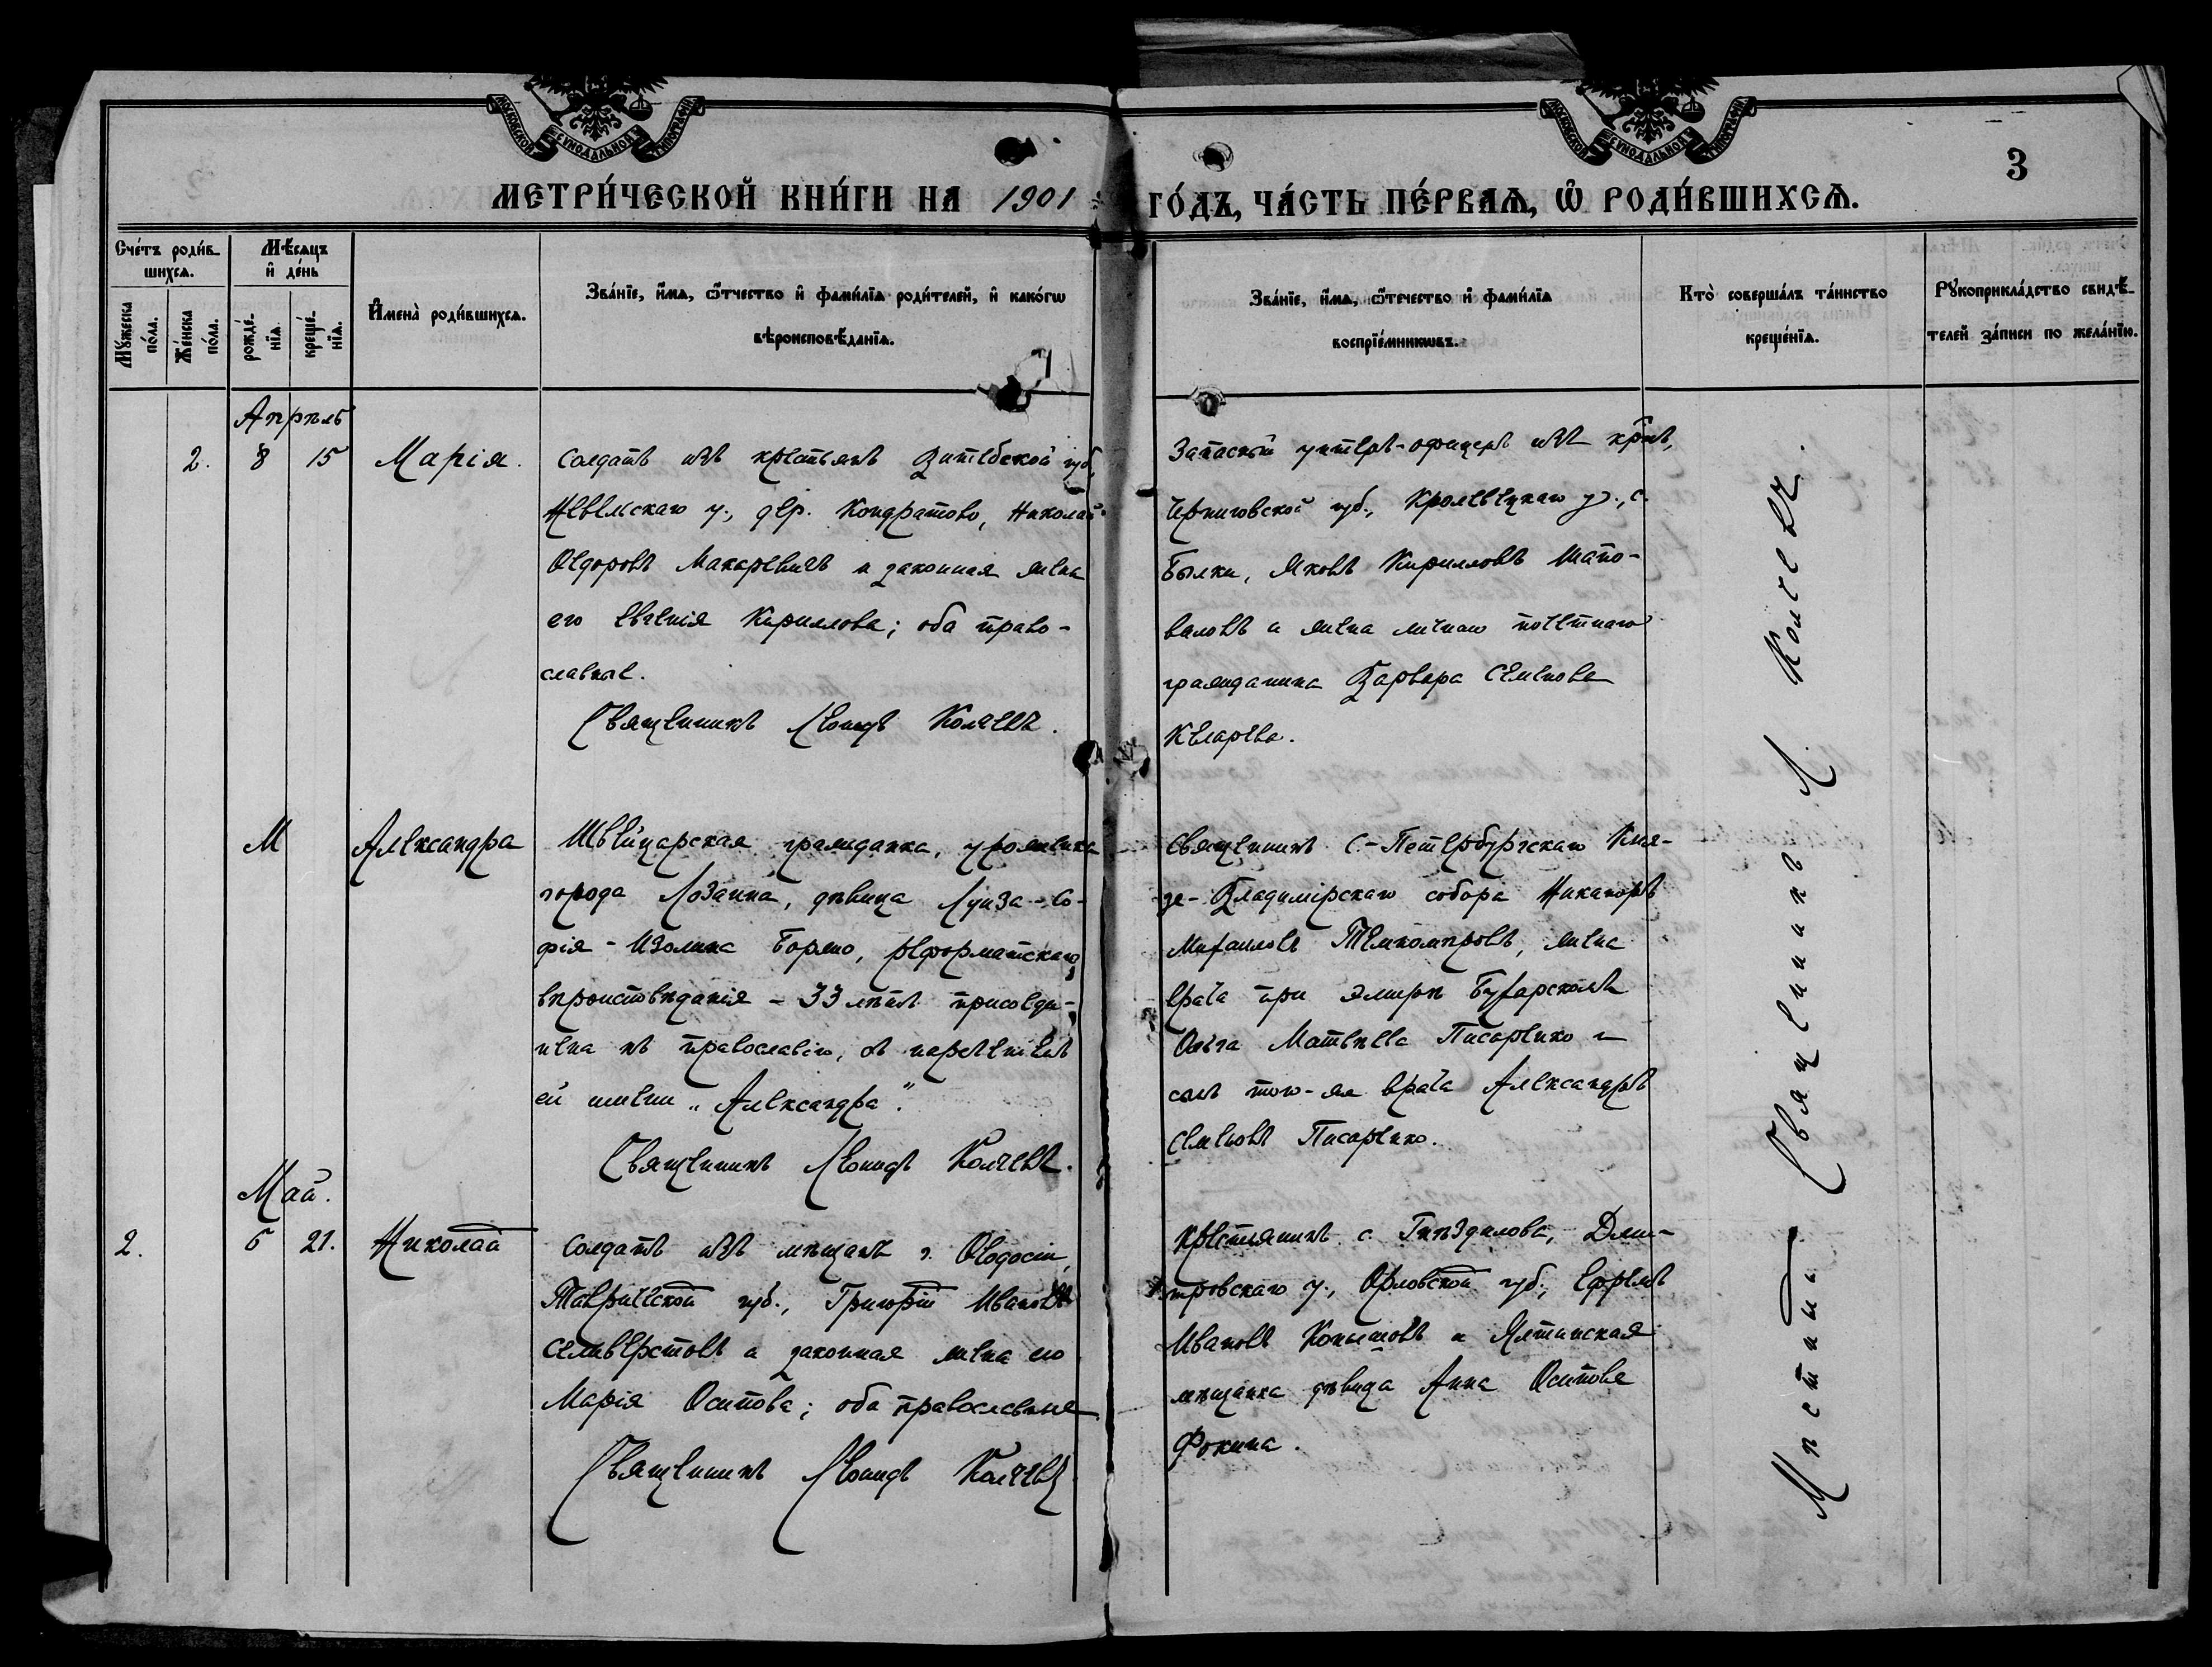 МОСКОВСКОЙ СѴНОДАЛЬНОЙ ТИПОГРАФІИ
МОСКОВСКОЙ СѴНОДАЛЬНОЙ ТИПОГРАФІИ
3
МЕТРИ́ЧЕСКОЙ КНИ́ГИ НА 1901 ГО́ДЪ, ЧА́СТЬ ПЕ́РВАѦ, Ѡ҆ РОДИ́ВШИХСѦ.
Сче́тъ роди́в-
шихсѧ.
Мꙋ́жеска
по́ла.
Же́нска
по́ла.
Мѣ́сѧцъ
и҆ де́нь
рожде́-
нїѧ.
креще́-
нїѧ.
И҆мена̀ роди́вшихсѧ.
Зва́нїе, и҆́мѧ, ѻ҆́тчество и҆ фами́лїѧ роди́телей, и҆ како́гѡ
вѣроисповѣ́данїѧ.
Зва́нїе, и҆́мѧ, ѻ҆́течество и҆ фами́лїѧ
воспрїе́мникѡвъ.
Кто̀ соверша́лъ та́инство
креще́нїѧ.
Рꙋкоприкла́дство свидѣ́-
телей за́писи по жела́нїю.
Апрѣль
2. 8 15 Марія.
Солдатъ изъ крестьянъ Витебской губ.,
Невельскаго у., дер. Кондратово, Николай
Ѳедоровъ Макаревичъ и законная жена
его Евгенія Кириллова; оба право-
славные.
Священникъ Леонидъ Колчевъ.
Запасный унтеръ-офицеръ изъ крнъ,
Черниговской губ., Кролевецкаго у., с.
Былки, Яковъ Кирилловъ Шапо-
валовъ и жена личнаго почетнаго
гражданина Варвара Семенова
Келарева.
М Александра
Швейцарская гражданка, уроженка
города Лозанна, дѣвица Луиза-Со-
фія-Изолина Боржо, реформатскаго
вѣроисповѣданія – 33 лѣтъ присоеди-
нена къ православію, съ нареченіемъ
ей имени „Александра“.
Священникъ Леонидъ Колчевъ.
Священникъ С.-Петербургскаго Кня-
зе-Владимірскаго собора Никаноръ
Михаиловъ Темномѣровъ, жена
врача при Эмирѣ Бухарскомъ
Ольга Матвѣева Писаренко и
сынъ того-же врача Александръ
Семеновъ Писаренко.
Май.
2. 6 21. Николай
Солдатъ изъ мѣщанъ г. Ѳеодосіи,
Таврической губ., Григорій Ивановъ
Селиверстовъ и законная жена его
Марія Осипова; оба православные
Священникъ Леонидъ Колчевъ
Крестьянинъ с. Гнѣздилова, Дми-
тровскаго у., Орловской губ., Ефремъ
Ивановъ Конышовъ и Ялтинская
мѣщанка дѣвица Анна Осипова
Фокина.
Мѣстный Священникъ Л. Колчевъ.